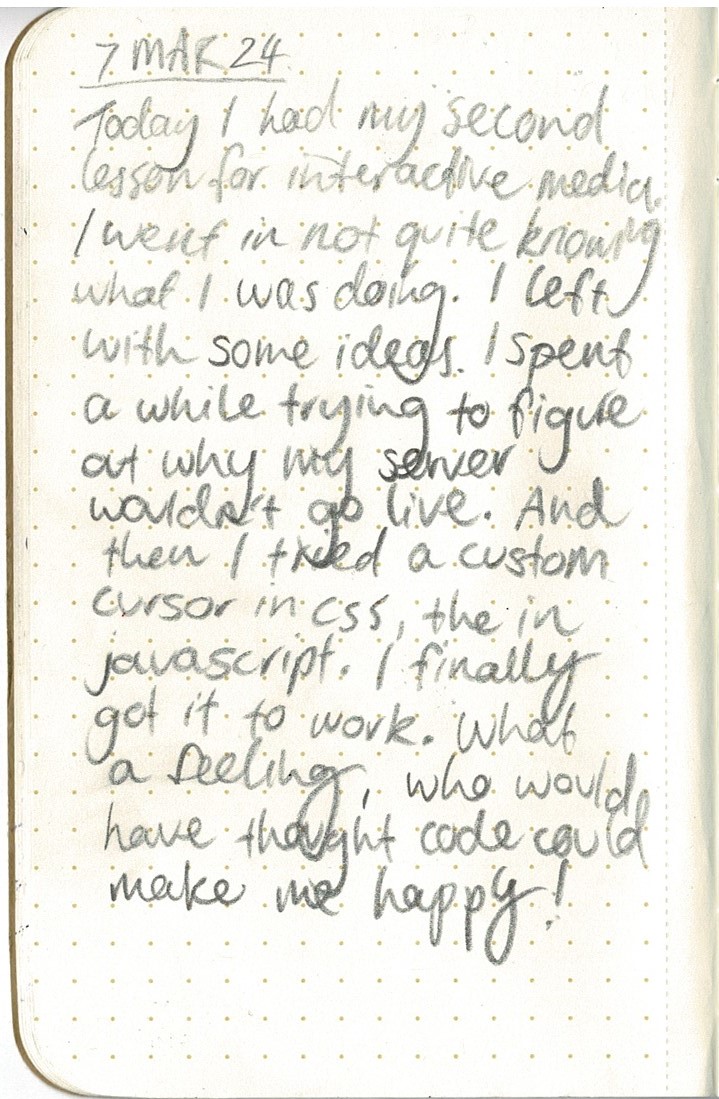 7 MAR 24
Today I had my second
lesson for interactive media.
I went in not quite knowing
what I was doing. I left
with some ideas. I spent
a while trying to figure
out why my server
wouldn't go live. And
then I tried a custom
cursor in css, the in
javascript. I finally
got it to work. What
a feeling, who would
have thought code could
make me happy!